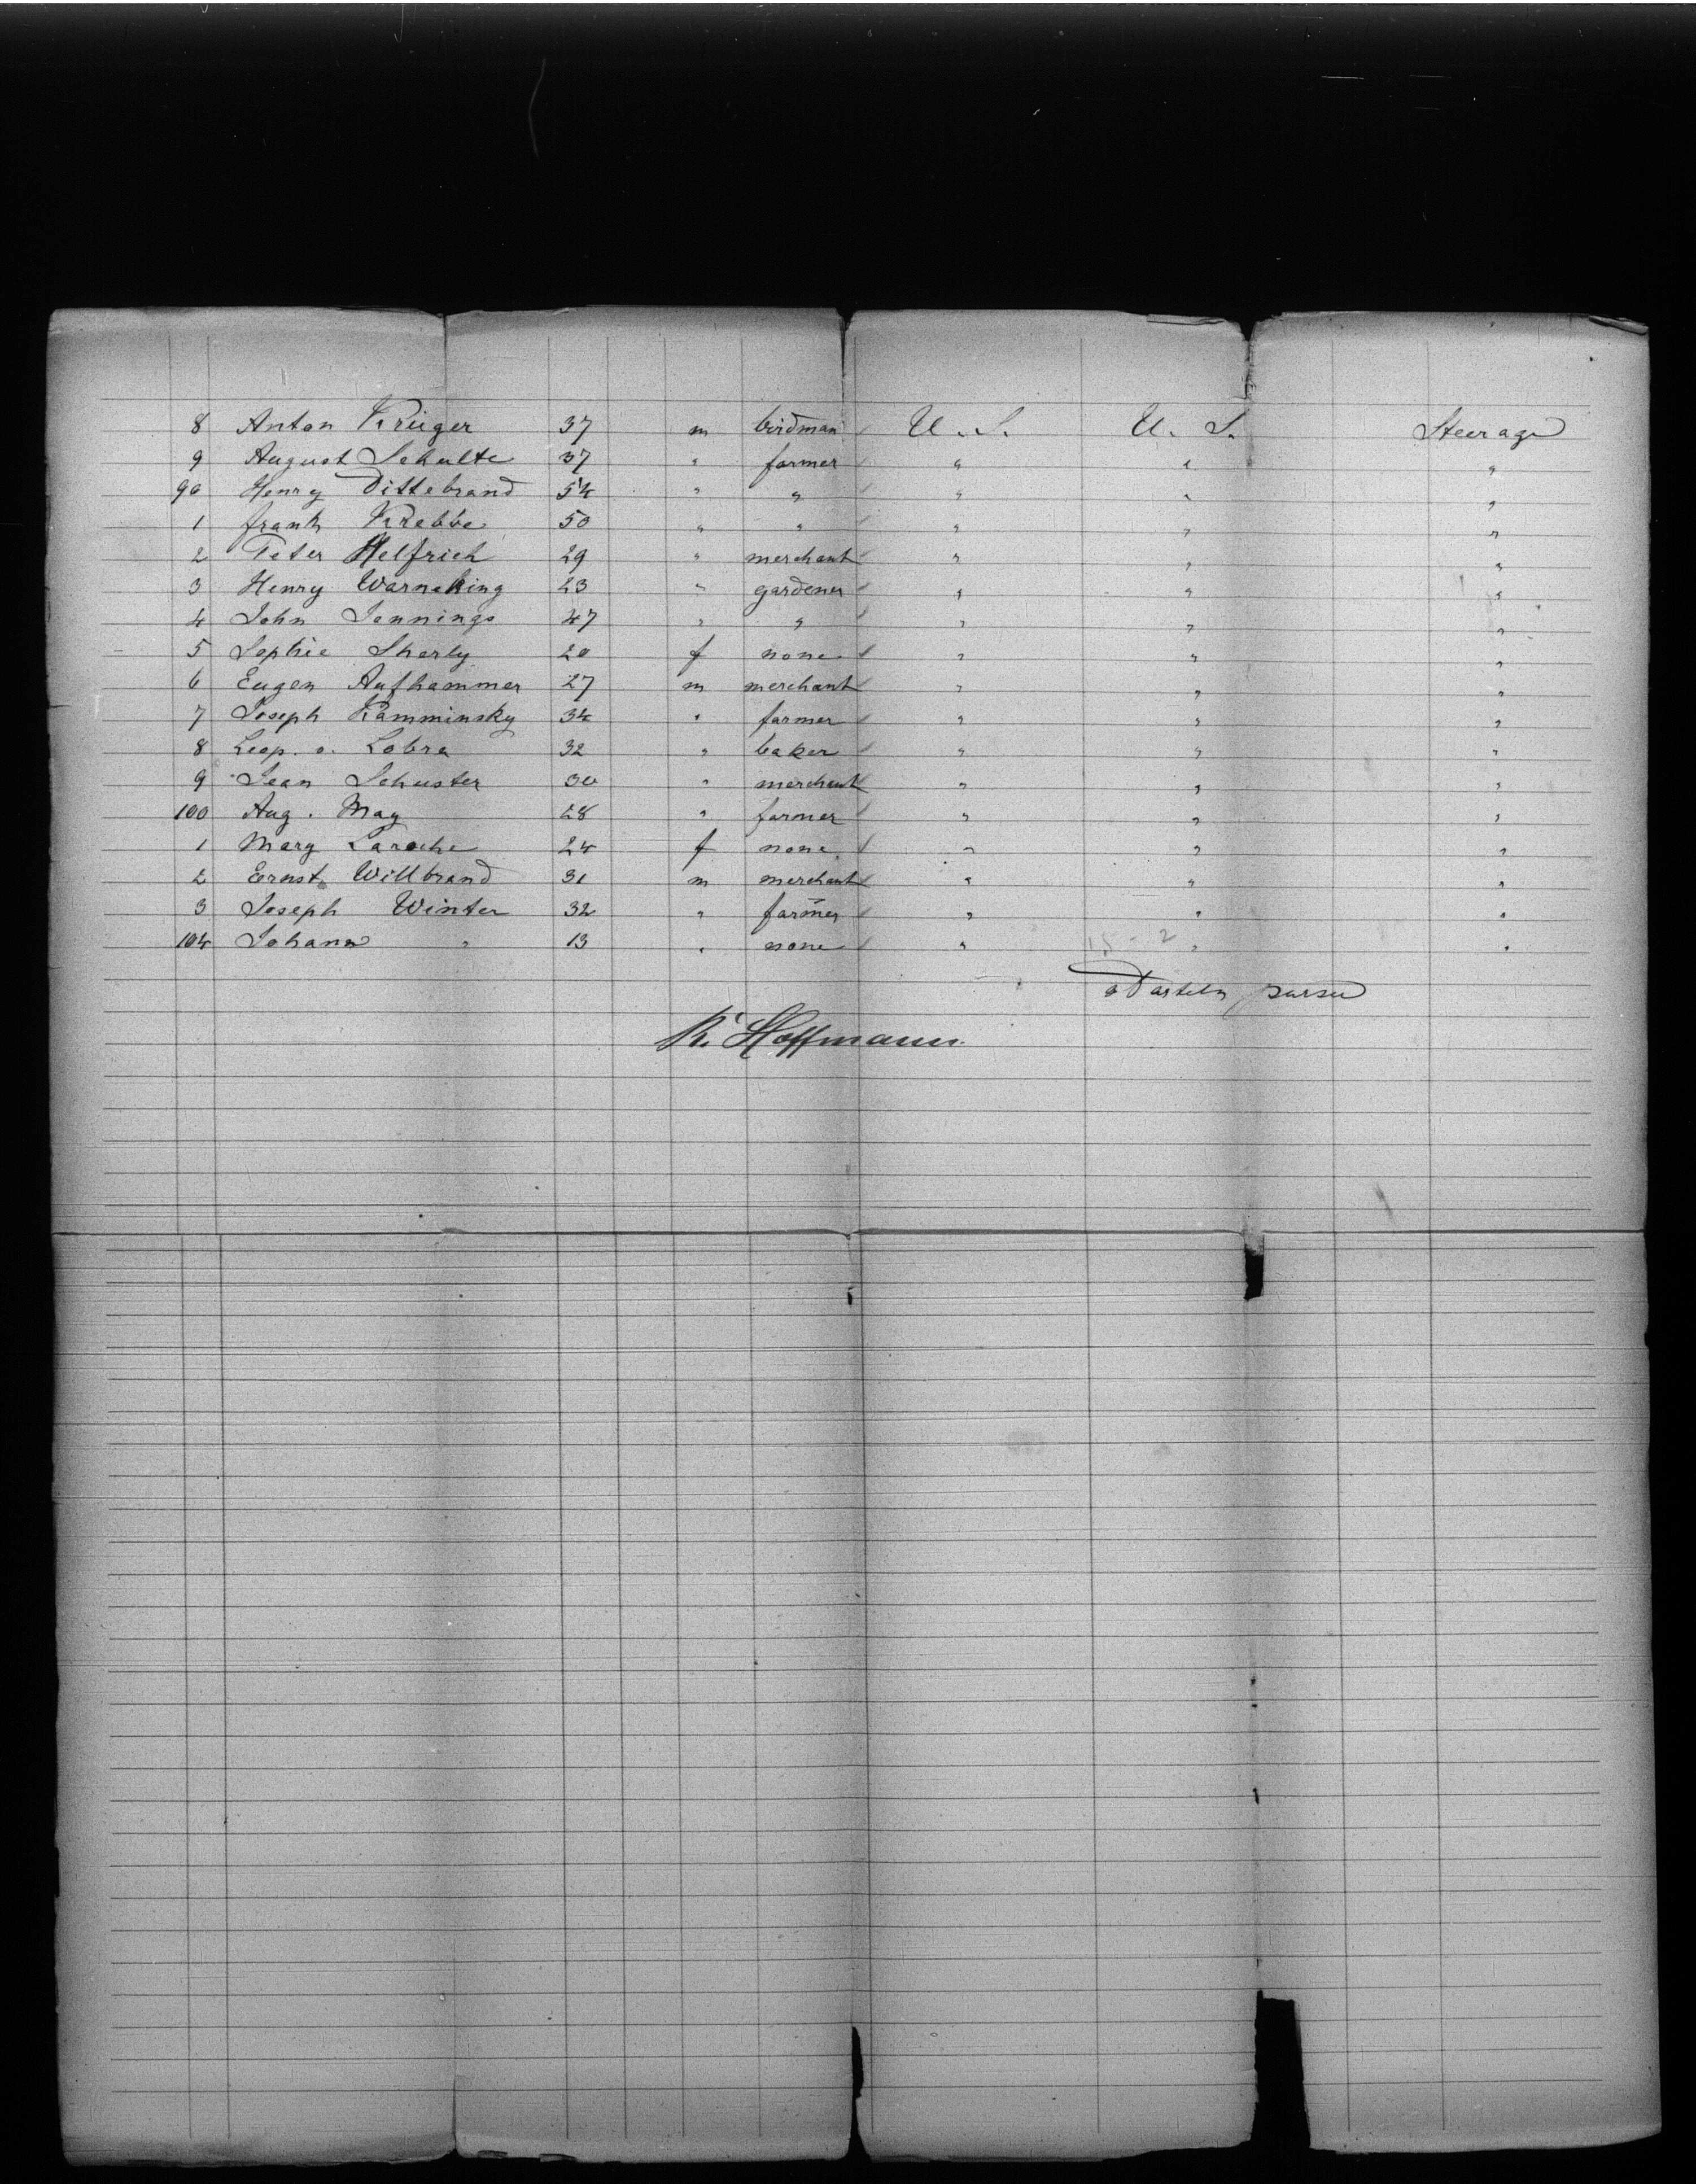 8 Anton Krüger 37 m birdman U. S. U. S. Steerage
9 August Schulte 37 " farmer " " "
90 Henry Dittebrand 54 " " " " "
1 frank Krebbe 50 " " " " "
2 Peter Helfrich 29 " merchant " " "
3 Henry Warneking 23 " gardener " " "
4 John Jennings 47 " " " " "
5 Sophie Sherly 20 f none " " "
6 Eugen Aufhammer 27 m merchant " " "
7 Joseph Kamminsky 34 " farmer " " "
8 Leop. v. Lobra 32 " baker " " "
9 Jean Schuster 30 " merchant " " "
100 Aug. May 28 " farmer " " "
1 Mary Laroche 24 f none " " "
2 Ernst Willbrand 31 m merchant " " "
3 Joseph Winter 32 " farmer " " "
104 Johann " 13 " none " " "
purser
K. Hoffmann